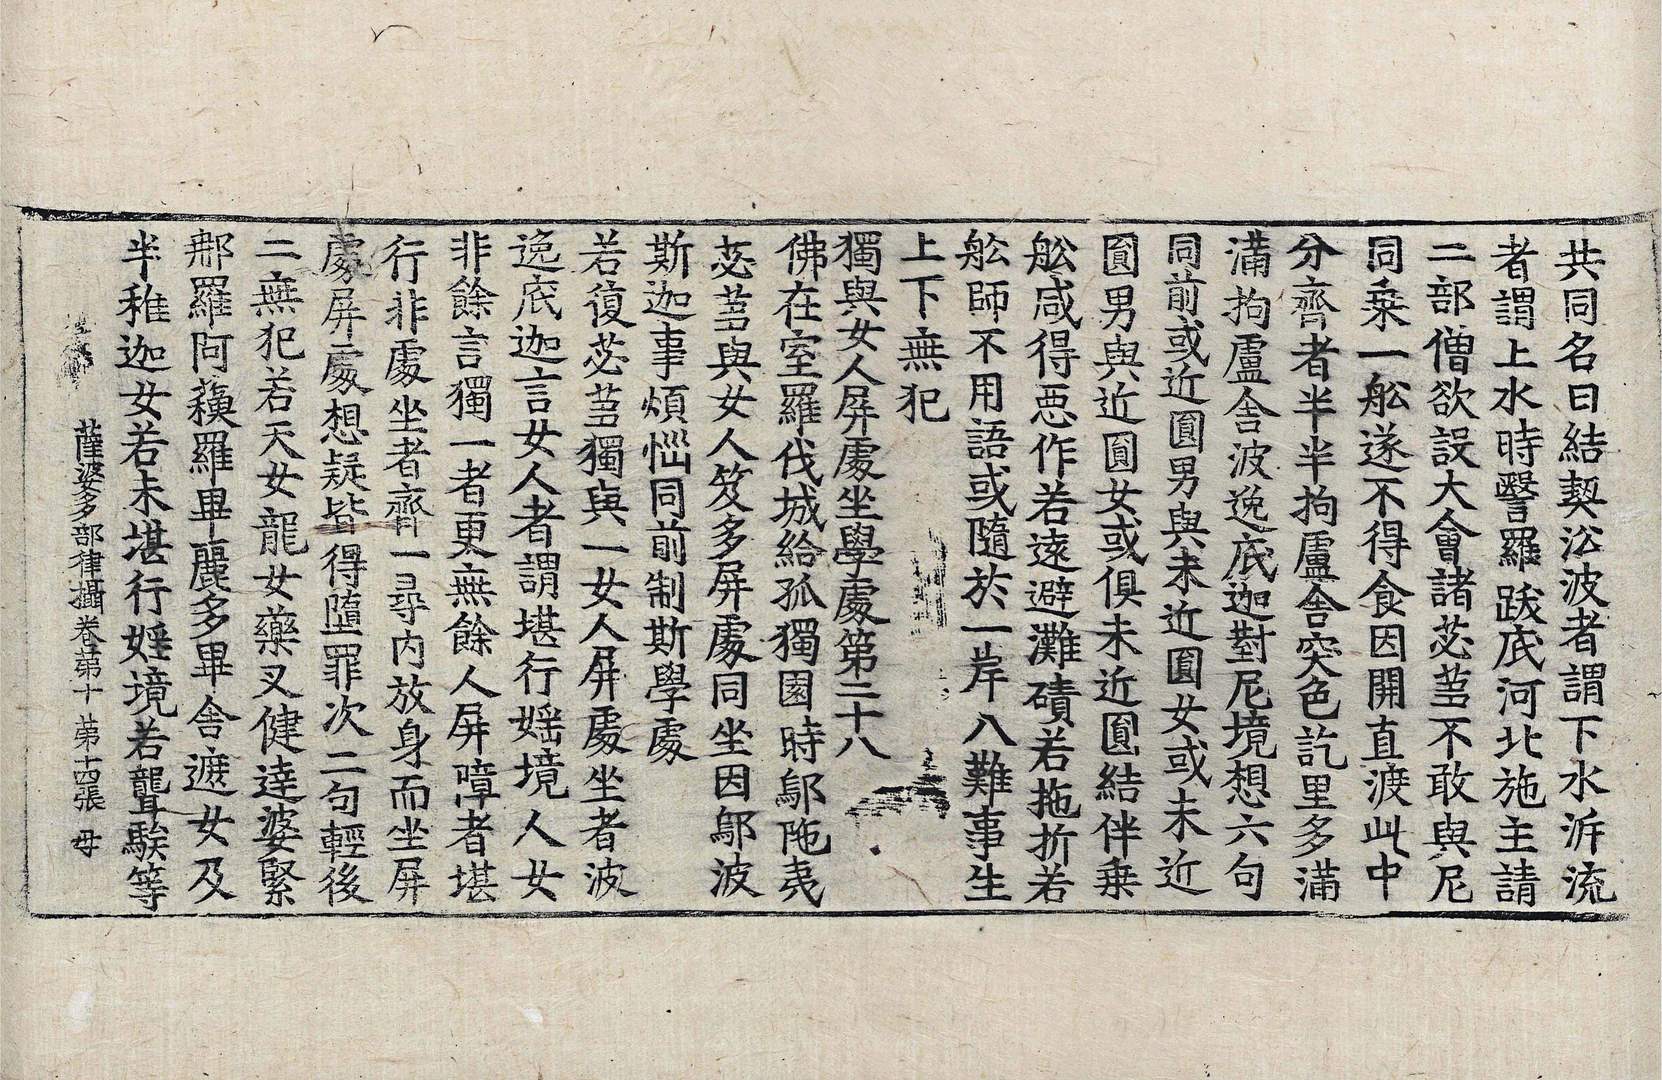 共同名曰結契㳂波者謂下水泝流
者謂上水時瑿羅跋底河北施主請
二部僧欲設大會諸苾蒭不敢與尼
同乗一舩遂不得食因開直渡此中
分齊者半半拘盧舍突色訖里多滿
滿拘盧舍波逸底迦對尼境想六句
同前或近圓男與未近圓女或未近
圓男與近圓女或俱未近圓結伴乗
舩咸得惡作若遠避灘磧若拖折若
舩師不用語或隨於一岸八難事生
上下無犯
獨與女人屏處坐學處第二十八
佛在室羅伐城給孤獨園時鄔陁夷
苾蒭與女人笈多屏處同坐因鄔波
斯迦事煩惱同前制斯學處
若復苾蒭獨與一女人屏處坐者波
逸底迦言女人者謂堪行婬境人女
非餘言獨一者更無餘人屏障者堪
行非處坐者齊一尋内放身而坐屏
處屏處想疑皆得墮罪次二句輕後
二無犯若天女龍女藥叉健達婆緊
那羅阿蘇羅畢麗多畢舍遮女及
半稚迦女若未堪行婬境若聾騃等
薩婆多部律攝卷苐十 苐十四張 毋